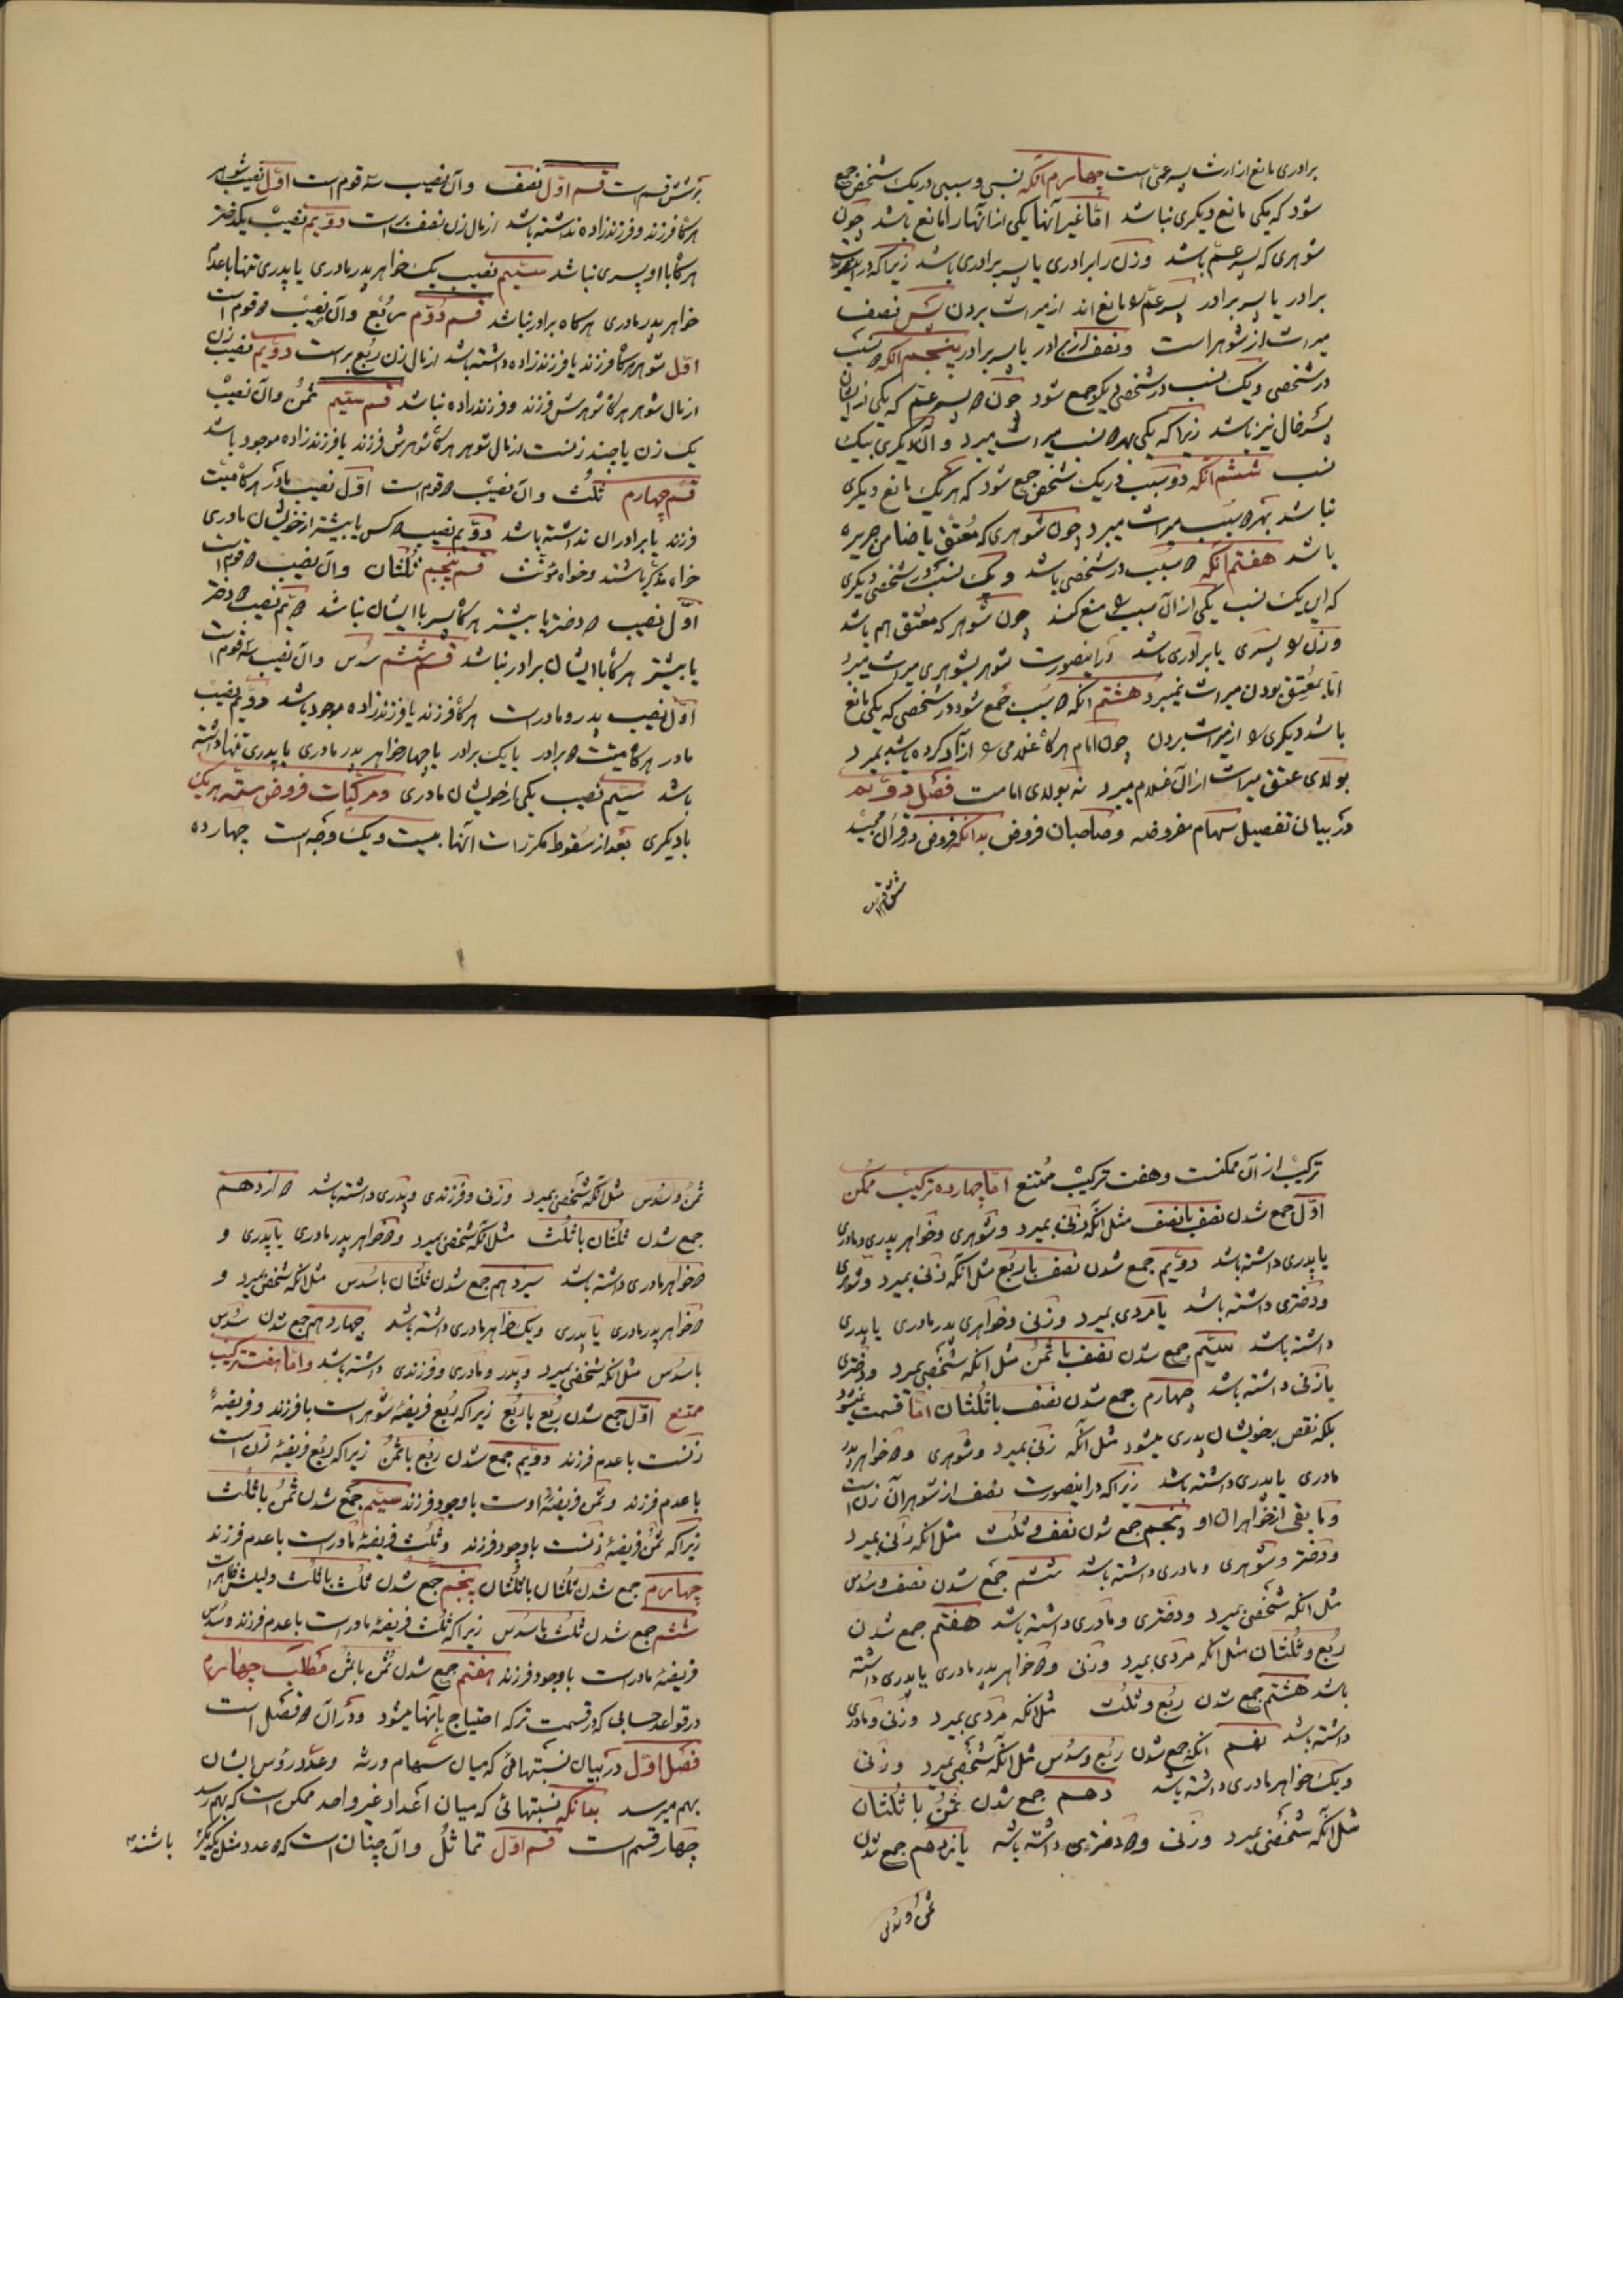 برادری مانع از ارث پسر عمّی است چهارم آنکه نسبی و سببی در یک شخص جمع
شود که یکی مانع دیگری نباشد امّا غیر آنها یکی از آنها را مانع باشد چون
شوهری که پسر عمّ باشد و زن را برادری یا پسر برادری باشد زیرا که در اینصورت
برادر یا پسر برادر پسر عمّ را مانع اند از میراث بردن پس نصف
میراث از شوهر است و نصف از برادر یا پسر برادر پنجم آنکه دو نسب
در شخصی و یک نسب در شخص دیگر جمع شود چون دو پسر عمّ که یکی از ایشان
پسر خال نیز باشد زیرا که یکی بهر دو نسب میراث میبرد و آن دیگری بیک
نسب ششم آنکه دو سبب در یک شخص جمع شود که هر یک مانع دیگری
نباشد بهر دو سبب میراث میبرد چون شوهری که مُعتِق یا ضامن جریره
باشد هفتم آنکه دو سبب در شخصی باشد و یک نسب در شخصی دیگری
که این یک نسب یکی از آن سبب را منع کند چون شوهر که معتق هم باشد
و زن را پسری یا برادری باشد در اینصورت شوهر بشوهری میراث میبرد
امّا بمُعتِق بودن میراث نمیبرد هشتم آنکه دو سبب جمع شود در شخصی که یکی مانع
باشد دیگری را از میراث بردن چون امام هرگاه غلامی را آزاد کرده باشد بمیرد
بولای عتق میراث از آن غلام میبرد نه بولای امامت فصل دوّیم
در بیان تفصیل سهام مفروضه و صاحبان فروض بدانکه فروض در قرآن مجید
بر شش قسم است قسم اوّل نصف و آن نصیب سه قوم است اوّل نصیب شوهر
هرگاه فرزند و فرزندزاده نداشته باشد از مال زن نصف براست دوّیم نصیب یکدختر
هرگاه با او پسری نباشد سیّم نصیب یک خواهر پدر مادری یا پدری تنها با عدم
خواهر پدر مادری هرگاه برادر نباشد قسم دوّم رُبع و آن نصیب دو قوم است
اوّل شوهر هرگاه فرزند یا فرزندزاده داشته باشد از مال زن رُبع براست دوّیم نصیب زن
از مال شوهر هرگاه شوهرش فرزند و فرزندزاده نباشد قسم سیّم ثُمن و آن نصیب
یک زن یا چند زنست از مال شوهر هرگاه شوهرش فرزند یا فرزندزاده موجود باشد
قسم چهارم ثُلث و آن نصیب دو قوم است اوّل نصیب مادر هرگاه میّت
فرزند یا برادران نداشته باشد دوّیم نصیب دو کس یا بیشتر از خویشان مادری
خواه مذکّر باشند و خواه مؤنّث قسم پنجم ثُلثان و آن نصیب دو قوم است
اوّل نصیب دو دختر یا بیشتر هرگاه پسر با ایشان نباشد دویّم نصیب دو خواهر
یا بیشتر هرگاه با ایشان برادر نباشد قسم ششم سُدس و آن نصیب سه قوم است
اوّل نصیب پدر و مادر است هرگاه فرزند یا فرزندزاده موجود باشد دوّیم نصیب
مادر هرگاه میّت دو برادر یا یک برادر یا چهار خواهر پدر مادری یا پدری تنها داشته
باشد سیّم نصیب یکی از خویشان مادری و مرکّبات فروض ستّه هر یک
با دیگری بعد از سقوط مکرّرات آنها بیست و یک وجه است چهارده
ترکیب از آن ممکنست و هفت ترکیب مُمتنع امّا چهارده ترکیب ممکن
اوّل جمع شدن نصف با نصف مثل آنکه زنی بمیرد و شوهری و خواهر پدری و مادری
یا پدری داشته باشد دوّیم جمع شدن نصف با رُبع مثل آنکه زنی بمیرد و شوهری
و دختری داشته باشد یا مردی بمیرد و زنی و خواهری پدر مادری یا پدری
داشته باشد سیّم جمع شدن نصف با ثُمن مثل آنکه شخصی بمیرد و دختری
یا زنی داشته باشد چهارم جمع شدن نصف با ثُلثان امّا قسمت نمیشود
بلکه نقص بخویشان پدری میشود مثل آنکه زنی بمیرد و شوهری و دو خواهر پدر
مادری یا پدری داشته باشد زیرا که در اینصورت نصف از شوهر آن زن است
و مابقی از خواهران او پنجم جمع شدن نصف و ثلث مثل آنکه زنی بمیرد
و دختر و شوهری و مادری داشته باشد ششم جمع شدن نصف و سُدس
مثل آنکه شخصی بمیرد و دختری و مادری داشته باشد هفتم جمع شدن
رُبع و ثُلثان مثل آنکه مردی بمیرد و زنی و دو خواهر پدر مادری یا پدری داشته
باشد هشتم جمع شدن رُبع و ثلث مثل آنکه مردی بمیرد و زنی و مادری
داشته باشد نهم آنکه جمع شدن رُبع و سُدس مثل آنکه شخصی بمیرد و زنی
و یک خواهر مادری داشته باشد دهم جمع شدن ثُمن با ثلثان
مثل آنکه شخصی بمیرد و زنی و دو دختری داشته باشد یازدهم جمع شدن
ثمن و سُدس
ثُمن و سُدس مثل آنکه شخصی بمیرد و زنی و فرزندی و پدری داشته باشد دوازدهم
جمع شدن ثلثان با ثلث مثل آنکه شخصی بمیرد و دو خواهر پدر مادری یا پدری و
دو خواهر مادری داشته باشد سیزدهم جمع شدن ثلثان با سُدس مثل آنکه شخصی بمیرد و
دو خواهر پدر مادری یا پدری و یک خواهر مادری داشته باشد چهاردهم جمع شدن سُدس
با سُدس مثل آنکه شخصی بمیرد و پدر و مادری و فرزندی داشته باشد و امّا هفت ترکیب
ممتنع اوّل جمع شدن رُبع با رُبع زیرا که رُبع فریضهٔ شوهر است با فرزند و فریضهٔ
زنست با عدم فرزند دوّیم جمع شدن ربع با ثمن زیرا که رُبع فریضهٔ زن است
با عدم فرزند و ثمن فریضهٔ اوست با وجود فرزند سیّم جمع شدن ثُمن با ثلث
زیرا که ثمن فریضهٔ زنست با وجود فرزند و ثلث فریضهٔ مادر است با عدم فرزند
چهارم جمع شدن ثلثان با ثلثان پنجم جمع شدن ثلث با ثلث دلیلش ظاهر است
ششم جمع شدن ثلث با سُدس زیرا که ثلث فریضهٔ مادر است با عدم فرزند و سُدس
فریضهٔ مادر است با وجود فرزند هفتم جمع شدن ثُمن با ثمن مطلب چهارم
در قواعد حسابی که در قسمت ترکه احتیاج بآنها میشود و در آن دو فصل است
فصل اوّل در بیان نسبتهائی که میان سهام ورثه و عدد رؤس ایشان
بهم میرسد بدانکه نسبتهائی که میان اعداد غیر واحد ممکن است که بهم رسد
چهار قسم است قسم اوّل تماثُل و آن چنان است که دو عدد مثل یکدیگر باشند